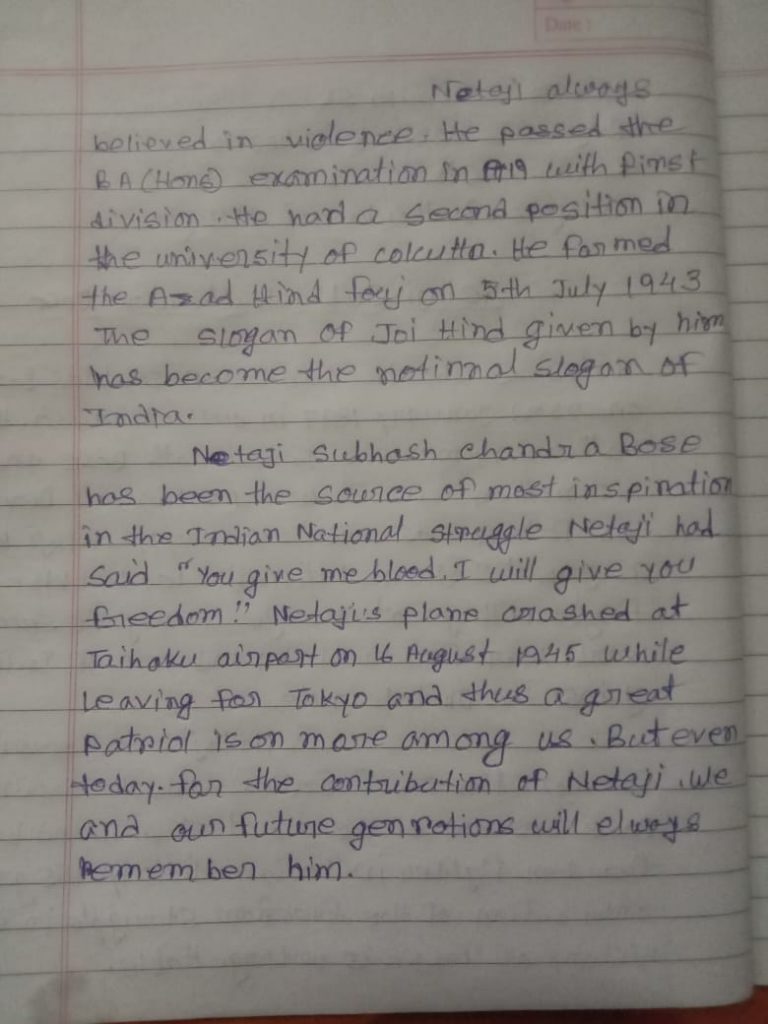 Date :
Netaji always
believed in violence. He passed the
BA (Hons) examination in 1919 with first
division. He had a second position in
the university of calcutta. He formed
the Azad Hind fauj on 5th July 1943
The slogan of Jai Hind given by him
has become the notinnal slogan of
India.
Netaji Subhash chandra Bose
has been the source of most inspiration
in the Indian National struggle Netaji had
said "You give me blood. I will give you
freedom!" Netaji's plane crashed at
Taihoku airport on 16 August 1945 while
leaving for Tokyo and thus a great
patriot is on more among us. But even
today. for the contribution of Netaji. we
and our future genrotions will elways
remember him.